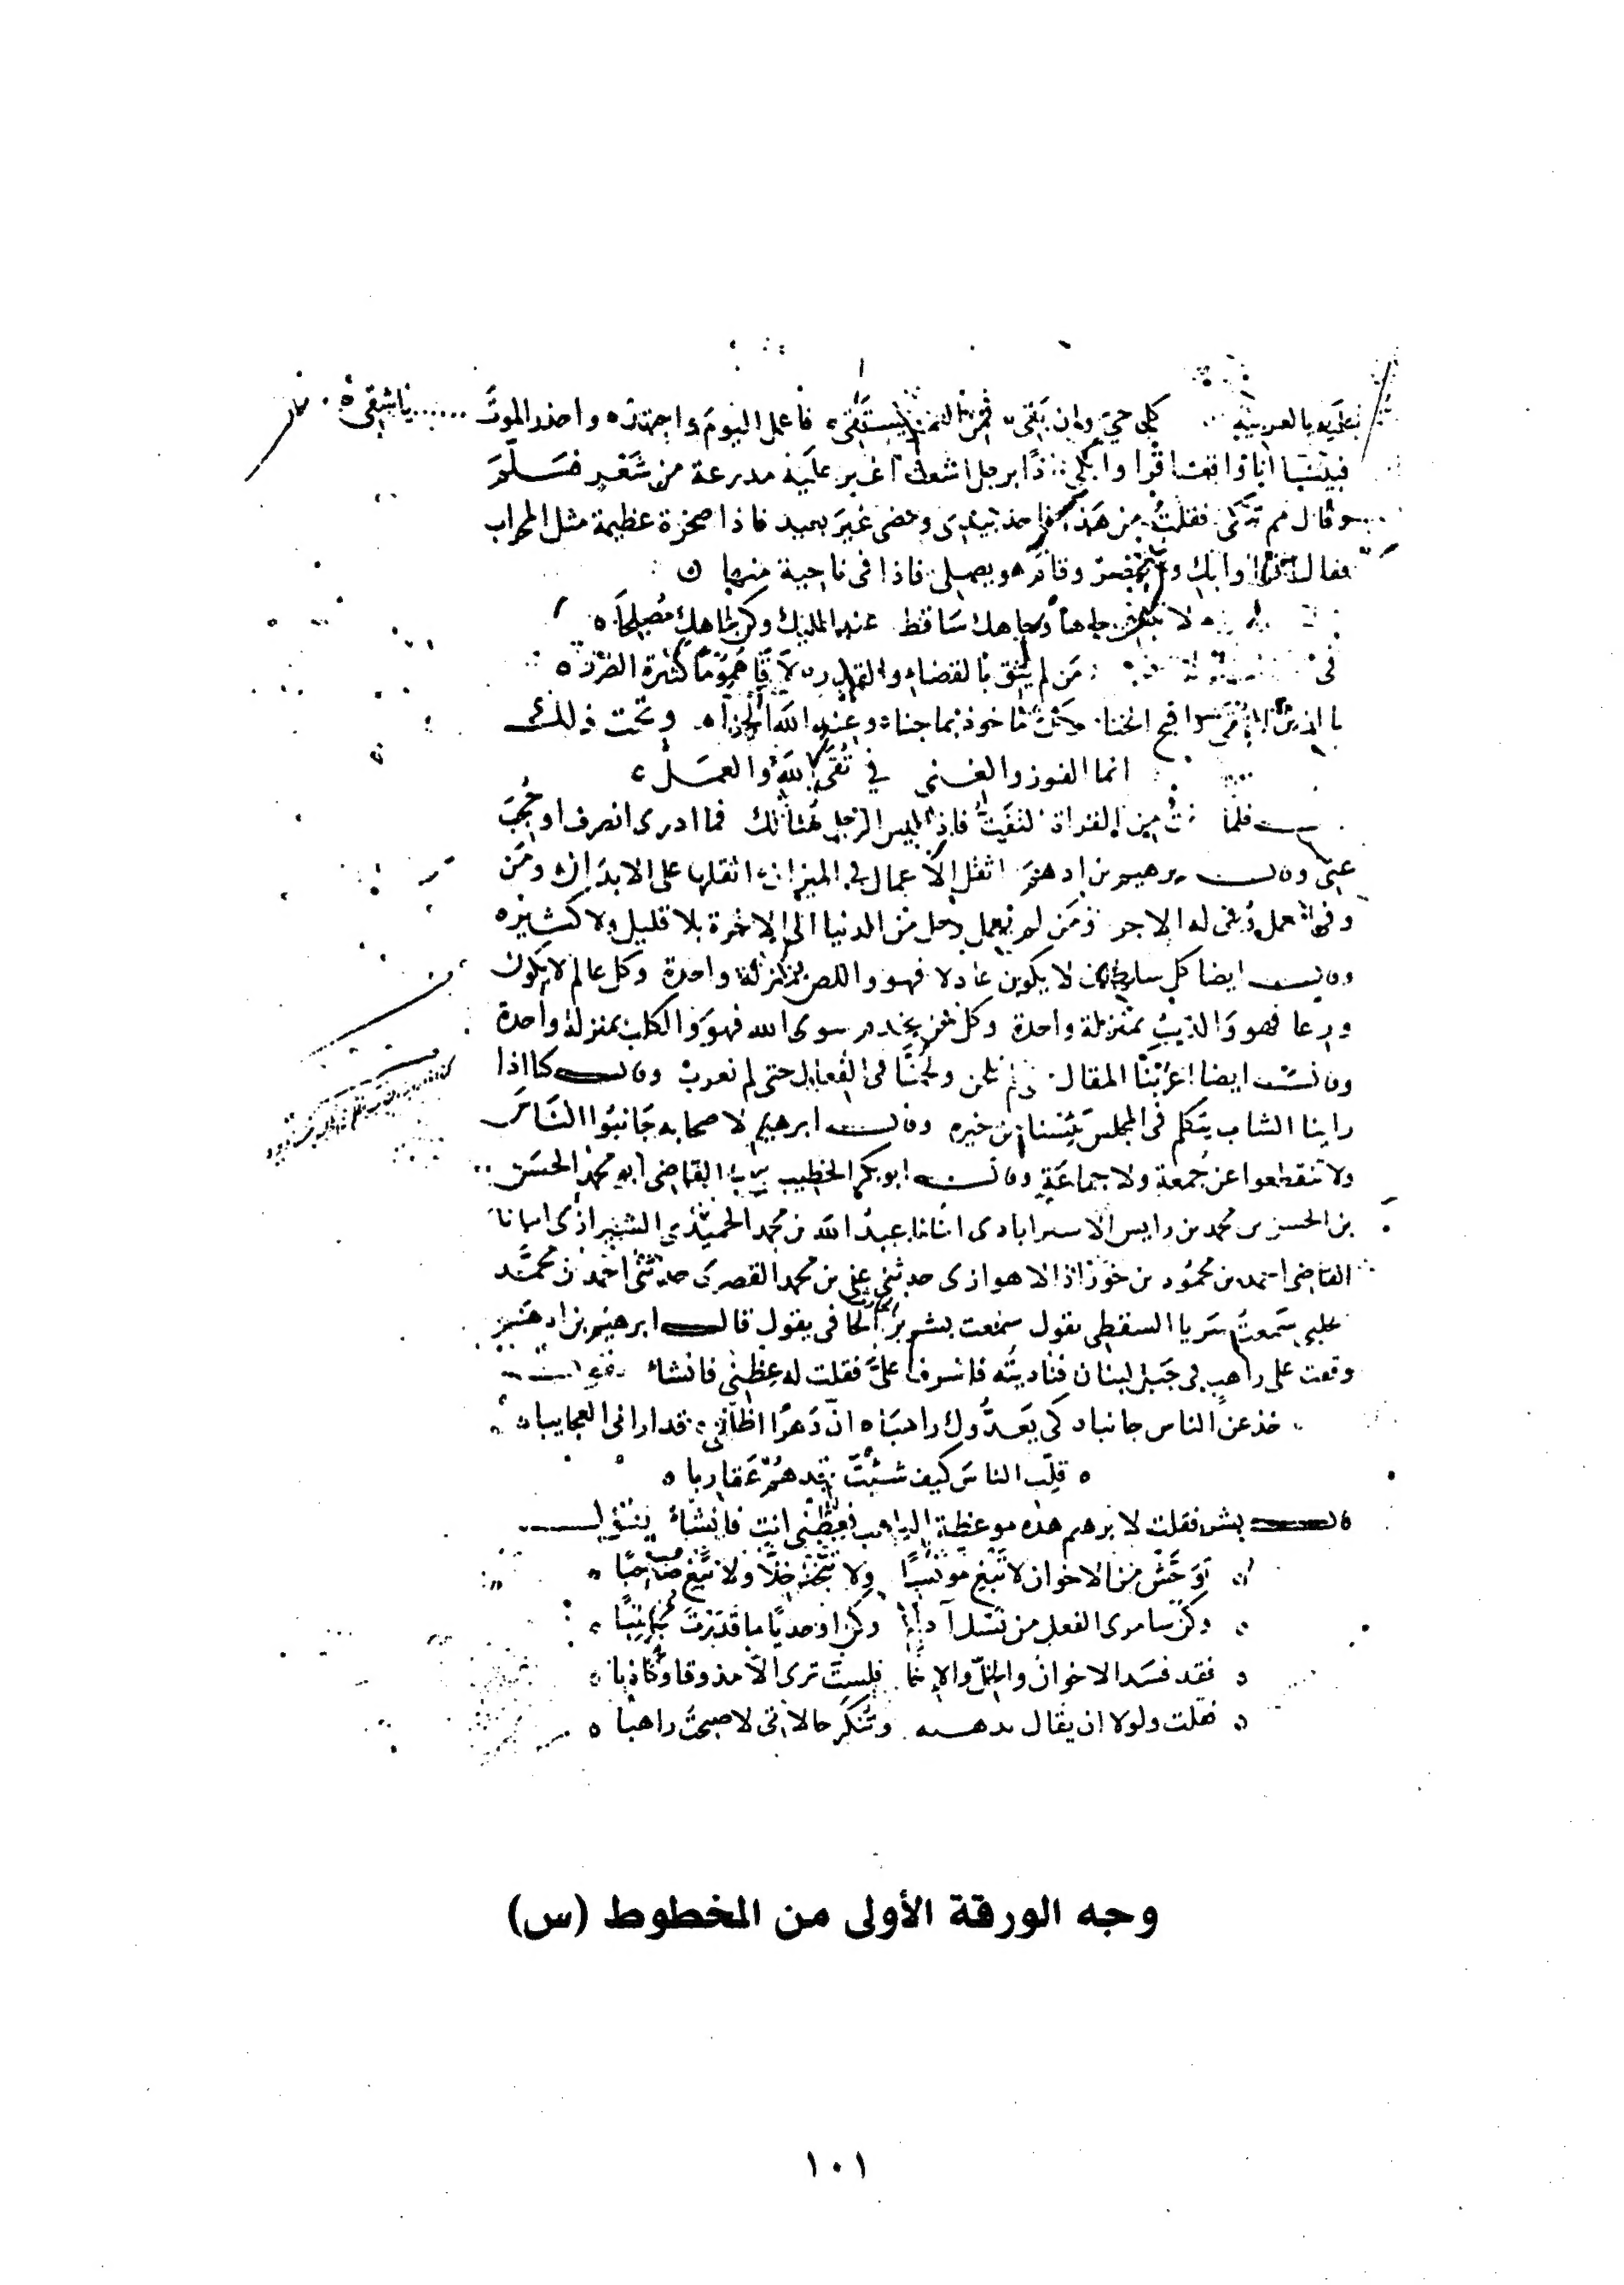 عليه بالعربية كل حي وان بقى فمن العمر يستقى فاعمل اليوم واجتهد واحذر الموت يا شقى
فبينا انا واقف اقرا وابكي اذا برجل اشعث اغبر عليه مدرعة من شعر فسلم
وقال مم تبكى فقلت من هذا فاخذ بيدى ومضى غير بعيد فاذا صخرة عظيمة مثل المحراب
فقال اقرا وابك وقام هو يصلى فاذا فى ناحية منها
لا تبغين جاها وجاهك ساقط عند المليك وكن لجاهك مصلحا
فى من لم يثق بالقضاء والقدر لاقا هموما كثيرة الضرر
ما ازين التقى وما اقبح الخنا وكل ماخوذ بما جنا وعند الله الجزا وتحت ذلك
انما الفوز والغنى في تقى الله والعمل
فلما من القراة التفت فاذا ليس الرجل هنالك فما ادرى انصرف او حجب
عنى وقال ابرهيم بن ادهم اثقل الاعمال فى الميزان اثقلها على الابدان ومن
وفى العمل وفى له الاجر ومن لم يعمل رحل من الدنيا الى الاخرة بلا قليل ولا كثير
وقال ايضا كل سلطان لا يكون عادلا فهو واللص بمنزلة واحدة وكل عالم لا يكون
ورعا فهو والذيب بمنزلة واحدة وكل من يخدم سوى الله فهو والكلب بمنزلة واحدة
وقال ايضا اعربنا المقال فلم نلحن ولحنا فى الفعال حتى لم نعرب وقال كنا اذا
راينا الشاب يتكلم فى المجلس يئسنا من خيره وقال ابرهيم لاصحابه جانبوا الناس
ولا تنقطعوا عن جمعة ولا جماعة وقال ابو بكر الخطيب القاضى ابو محمد الحسن
بن الحسن بن محمد بن رامين الاسترابادى انانا عبد الله بن محمد الحميدى الشيرازى انانا
القاضى احمد بن محمود بن خرزاذ الاهوازى حدثنى على بن محمد القصرى حدثنى احمد بن محمد
حلبى سمعت سريا السقطى يقول سمعت بشر بن الحارث الحافى يقول قال ابرهيم بن ادهم
وقفت على راهب فى جبل لبنان فناديته فاشرف على فقلت له عظنى فانشا يقول
خذ عن الناس جانبا كى يعدوك راهبا ان دهرا اظلنى قد ارانى العجايبا
قلب الناس كيف شئت تجدهم عقاربا
قال بشر فقلت لابرهيم هذه موعظة الراهب فعظنى انت فانشا يقول
توحش من الاخوان لا تبغ مونسا ولا تتخذ خلا ولا تبغ صاحبا
وكن سامرى الفعل من نسل آدم وكن اوحديا ما قدرت مجانبا
فقد فسد الاخوان والحل والاخا فلست ترى الا مذوقا وكاذبا
فقلت ولولا ان يقال مدهده وتنكر حالاتى لاصبحت راهبا
وجه الورقة الأولى من المخطوط (س)
١٠١